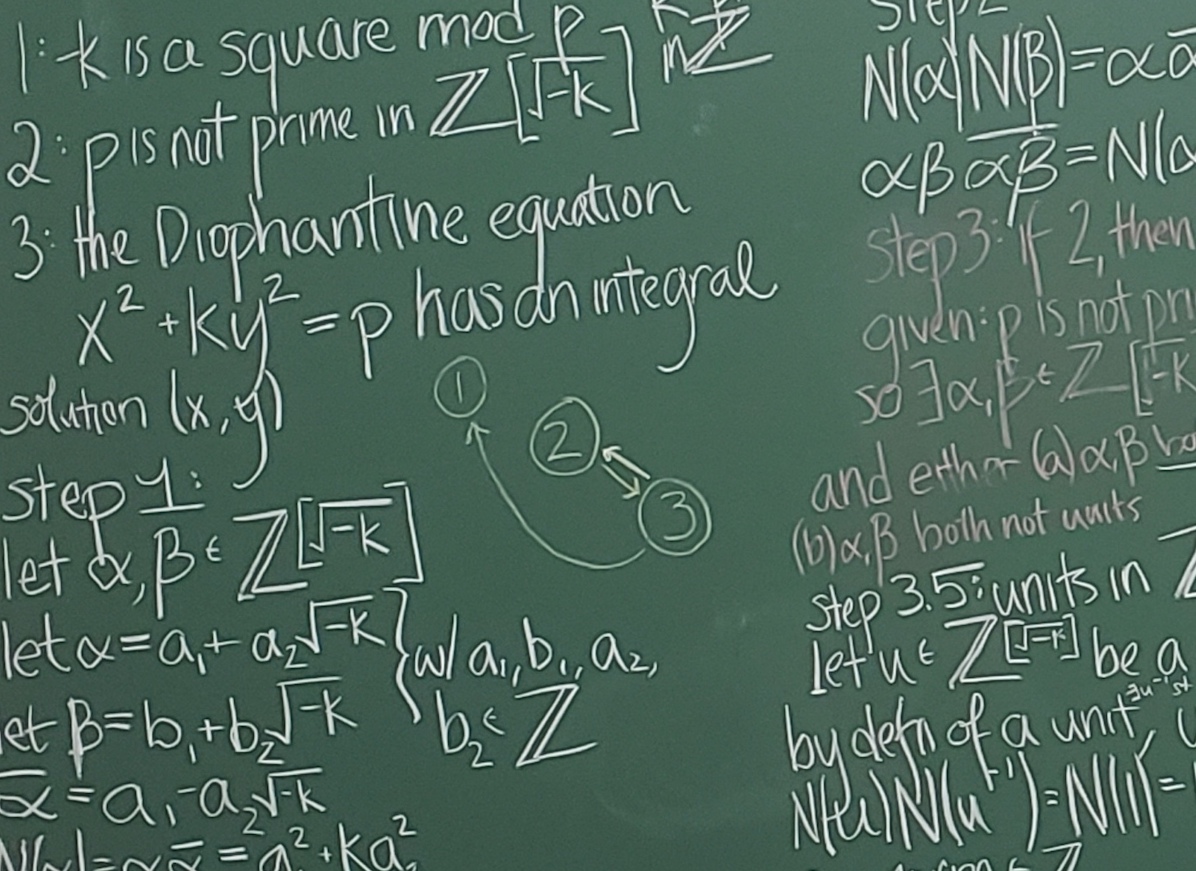 1: -k is a square mod p
in ℤ
2: p is not prime in ℤ[√-k]
3: the Diophantine equation
x² + ky² = p has an integral
solution (x, y)
① ② ③
step 1:
let α, β ∈ ℤ[√-k]
let α = a₁ + a₂√-k } w/ a₁, b₁, a₂,
let β = b₁ + b₂√-k b₂ ∈ ℤ
α̅ = a₁ - a₂√-k
N(α) = αα̅ = a₁² + ka₂²
step 2
N(α)N(β) = αα̅
αβ α̅β̅ = N(α
step 3: if 2, then
given: p is not pri
so ∃α, β ∈ ℤ[√-k
and either (a) α, β
(b) α, β both not units
step 3.5: units in ℤ
let u ∈ ℤ[√-k] be a
by defn of a unit, ∃u⁻¹ st
N(u)N(u⁻¹) = N(1) =
∈ ℤ